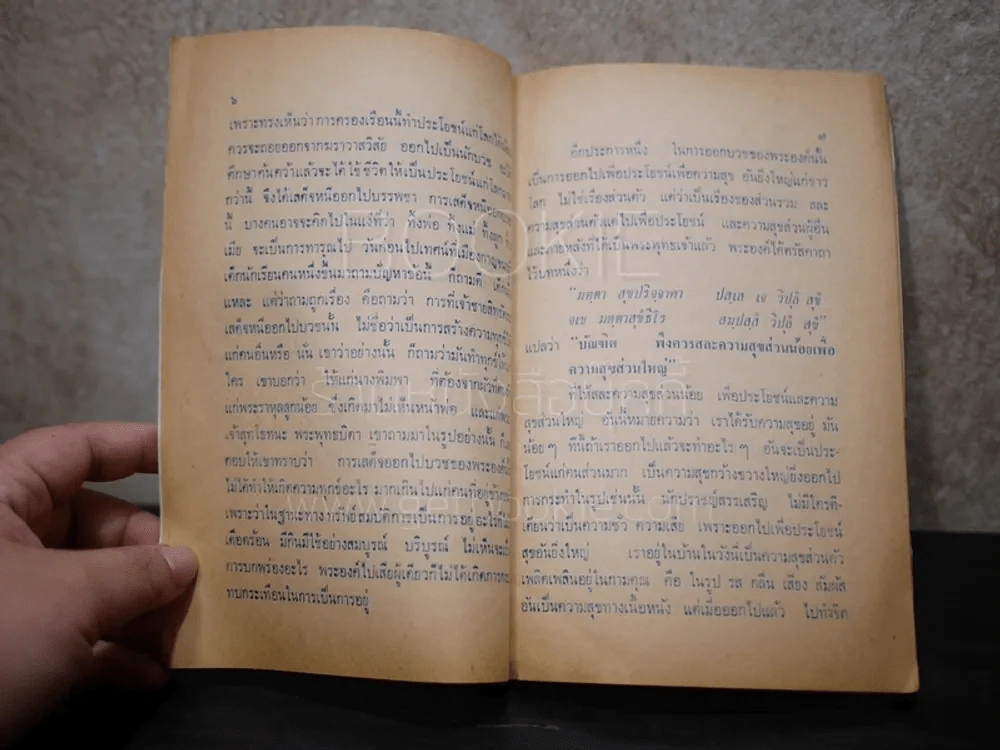 ๖
เพราะทรงเห็นว่า การครองเรือนนี้ทำประโยชน์แก่โลกได้
ควรจะถอยออกจากฆราวาสวิสัย ออกไปเป็นนักบวช
ศึกษาค้นคว้าแล้วจะได้ใช้ชีวิตให้เป็นประโยชน์แก่โลก
กว่านี้ จึงได้เสด็จหนีออกไปบรรพชา การเสด็จหนีออก
นี้ บางคนอาจจะคิดไปในแง่ที่ว่า ทิ้งพ่อ ทิ้งแม่ ทิ้งลูก
เมีย จะเป็นการทารุณไป วันก่อนไปเทศน์ที่เมือง
เด็กนักเรียนคนหนึ่งขึ้นมาถามปัญหาข้อนี้ ก็ถามดี
แหละ แต่ว่าถามถูกเรื่อง คือถามว่า การที่เจ้าชายสิทธัตถะ
เสด็จหนีออกไปบวชนั้น ไม่ชื่อว่าเป็นการสร้างความทุกข์
แก่คนอื่นหรือ นั่น เขาว่าอย่างนั้น ก็ถามว่ามันทำทุกข์
ใคร เขาบอกว่า ให้แก่นางพิมพา ที่ต้องจากผัวที่
แก่พระราหุลลูกน้อย ซึ่งเกิดมาไม่เห็นหน้าพ่อ และ
เจ้าสุทโธทนะ พระพุทธบิดา เขาถามมาในรูปอย่างนั้น
ตอบให้เขาทราบว่า การเสด็จออกไปบวชของพระองค์
ไม่ได้ทำให้เกิดความทุกข์อะไร มากเกินไปแก่คนที่อยู่
เพราะว่าในฐานะทางทรัพย์สมบัติการเป็นการอยู่ อะไรก็
เดือดร้อน มีกินมีใช้อย่างสมบูรณ์ บริบูรณ์ ไม่เห็นจะ
การบกพร่องอะไร พระองค์ไปเสียผู้เดียวก็ไม่ได้เกิดการ
ทบกระเทือนในการเป็นการอยู่
๗
อีกประการหนึ่ง ในการออกบวชของพระองค์นั้น
เป็นการออกไปเพื่อประโยชน์เพื่อความสุข อันยิ่งใหญ่แก่ชาว
โลก ไม่ใช่เรื่องส่วนตัว แต่ว่าเป็นเรื่องของส่วนรวม สละ
ความสุขส่วนตัวแต่ไปเพื่อประโยชน์ และความสุขส่วนผู้อื่น
และภายหลังที่ได้เป็นพระพุทธเจ้าแล้ว พระองค์ได้ตรัสคาถา
ไว้บทหนึ่งว่า
"มตฺตา สุขปริจฺจาคา ปสฺเส เจ วิปุลํ สุขํ
จเช มตฺตาสุขํธีโร สมฺปสฺสํ วิปุลํ สุขํ"
แปลว่า "บัณฑิต พึงควรสละความสุขส่วนน้อยเพื่อ
ความสุขส่วนใหญ่"
ที่ให้สละความสุขส่วนน้อย เพื่อประโยชน์และความ
สุขส่วนใหญ่ อันนี้หมายความว่า เราได้รับความสุขอยู่ มัน
น้อย ๆ ทีนี้ถ้าเราออกไปแล้วจะทำอะไร ๆ อันจะเป็นประ-
โยชน์แก่คนส่วนมาก เป็นความสุขกว้างขวางใหญ่ยิ่งออกไป
การกระทำในรูปเช่นนั้น นักปราชญ์สรรเสริญ ไม่มีใครติ-
เตียนว่าเป็นความชั่ว ความเสีย เพราะออกไปเพื่อประโยชน์
สุขอันยิ่งใหญ่ เราอยู่ในบ้านในวังนี่เป็นความสุขส่วนตัว
เพลิดเพลินอยู่ในกามคุณ คือ ในรูป รส กลิ่น เสียง สัมผัส
อันเป็นความสุขทางเนื้อหนัง แต่เมื่อออกไปแล้ว ไปทำจิต